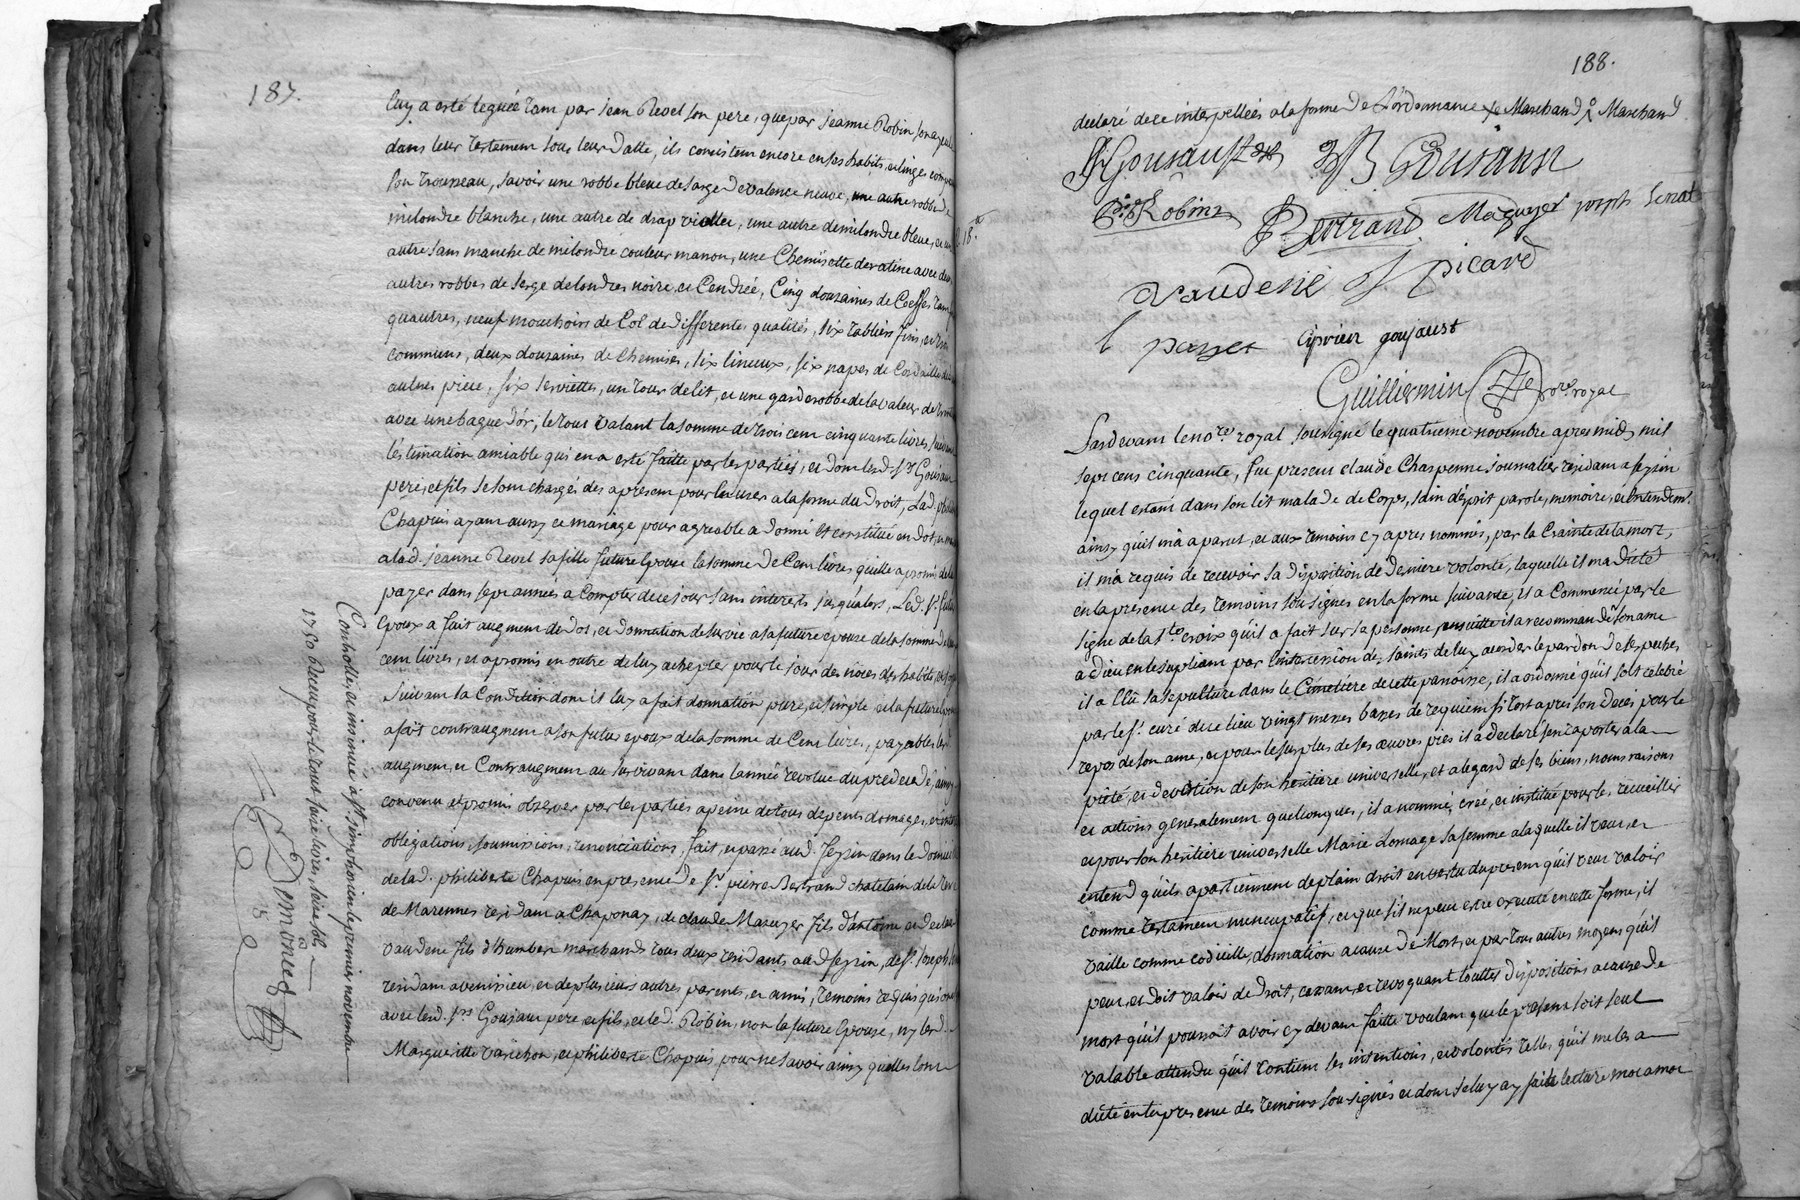 187.
luy a esté leguée tant par jean Revel son pere, que par jeanne Robin son ayeulle
dans leur testament sous leur datte, ils consistent encore en ses habits, et linges
son trousseau, savoir une robbe bleue de sarge de valence neuve, une autre robbe de
milondre blanche, une autre de drap viollet, une autre de milondre bleue, et un
autre sans manche de milondre couleur maron, une chemisette de ratine avec deux
autres robbes de serge de londres noire et cendrée, cinq douzaines de coeffes tant
qu'autres, neuf mouchoirs de col de differentes qualités, six tabliers fins, et trois
communs, deux douzaines de chemises, six linceux, six napes de
aulnes piece, six serviettes, un tour de lit, et une garderobbe de la valeur de
avec une bague d'or, le tout valant la somme de trois cent cinquante livres, suivant
l'estimation amiable qui en a esté faitte par les parties, et dont lesd. srs Goujaust
pere, et fils se sont chargés des apresent pour les user a la forme du droit, lad. philiberte
Chapuis ayant aussy ce mariage pour agreable a donné et constitué en dot,
a lad. jeanne Revel sa fille future epouse la somme de cent livres qu'elle a promis de
payer dans sept années a compter de ce jour sans interets jusqu'alors, led. sr futur
epoux a fait augment de dot, et donnation de survie a sa future epouse de la somme de
cent livres, et a promis en outre de luy achepter pour le jour des nôces des habits,
suivant sa condition dont il luy a fait donnation pure, et simple et la future epouse
a fait contraugment a son futur epoux de la somme de cent livres, payables les
augment, et contraugment au survivant dans l'année revolue du predecedé, ainsy
convenu et promis observer par les parties a peine de tous depents domages, et
obligations, soumissions, renonciations, fait, et passé aud. feyzin dans le domicile
de lad. philiberte Chapuis en presence de sr pierre Bertrand chatelain de la terre
de Marennes residant a Chaponay, de claude Mazuyer fils d'antoine et de
vaudene fils d'humbert marchands tous deux residants aud. feyzin, de sr joseph
residant a venissieu, et de plusieurs autres parents, et amis, temoins requis qui ont
avec lesd. srs Goujaust pere et fils, et led. Robin, non la future epouse, ny lesd.
Marguerite et philiberte Chapuis pour ne savoir ainsy qu'elles l'ont
Controllé, et insinué a st simphorien le premier novembre
1750 Reçu pour le tout
Demoniecq
188.
declaré de ce interpellées a la forme de l'ordonnance Marchand Marchand
Goujaust B Goujaust
Robin Bertrand Mazuyer joseph
18.
Vaudene J picard
l payet ciprien goujaust
Guilliermin nore royal
Pardevant le nore royal soussigné le quatrieme novembre apres midy mil
sept cens cinquante, fut present claude Charpenne journalier residant a feyzin
lequel estant dans son lit malade de corps, sain d'esprit parole, memoire, et entendemt
ainsy qu'il m'a a parut, et aux temoins cy apres nommés, par la crainte de la mort,
il m'a requis de recevoir sa disposition de derniere volonté, laquelle il m'a dicté
en la presence des temoins soussignés en la forme suivante, il a commencé par le
signe de la ste croix qu'il a fait sur sa personne, ensuitte il a recommandé son ame
a dieu en le supliant par l'intercession des saints de luy acorder le pardon de ses pechés,
il a élû sa sepulture dans le cimetiere de cette paroisse, il a ordonné qu'il soit celebré
par le sr curé du lieu vingt messes basses de requiem si tost apres son deces pour le
repos de son ame, et pour le surplus de ses œuvres pies il a declaré s'en raporter a la
pieté, et devotion de son heritiere universelle, et a l'egard de ses biens, noms raisons
et actions generalement quelconques, il a nommé, créé, et institué pour les recueillir
et pour son heritiere universelle Marie sa femme a laquelle il veut, et
entend qu'ils apartiennent de plain droit en vertu du present qu'il veut valoir
comme testament nuncupatif, et que s'il ne peut estre executé en cette forme, il
vaille comme codicille, donnation a cause de Mort, et par tous autres moyens qu'il
peut, et doit valoir de droit, cassant, et revoquant touttes dispositions a cause de
mort qu'il pourroit avoir cy devant faitte voulant que le present soit seul
valable attendu qu'il contient ses intentions, et volontés telles, qu'il me les a
dicté en la presence des temoins soussignés et dont je luy ay faite lecture mot a mot